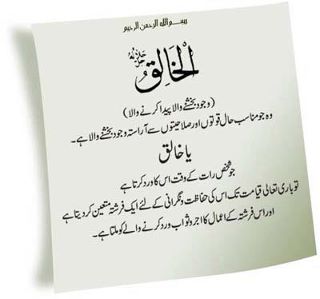 بسم اللہ الرحمن الرحیم
اَلْخَالِقُ جل جلالہ
(وجود بخشنے والا پیدا کرنے والا)
وہ جو مناسب حال قوتوں اور صلاحیتوں سے آراستہ وجود بخشنے والا ہے۔
یا خالق
جو شخص رات کے وقت اس کا ورد کرتا ہے
تو باری تعالیٰ قیامت تک اس کی حفاظت و نگرانی کے لئے ایک فرشتہ متعین کردیتا ہے
اور اس فرشتہ کے اعمال کا اجر و ثواب ورد کرنے والے کو ملتا ہے۔